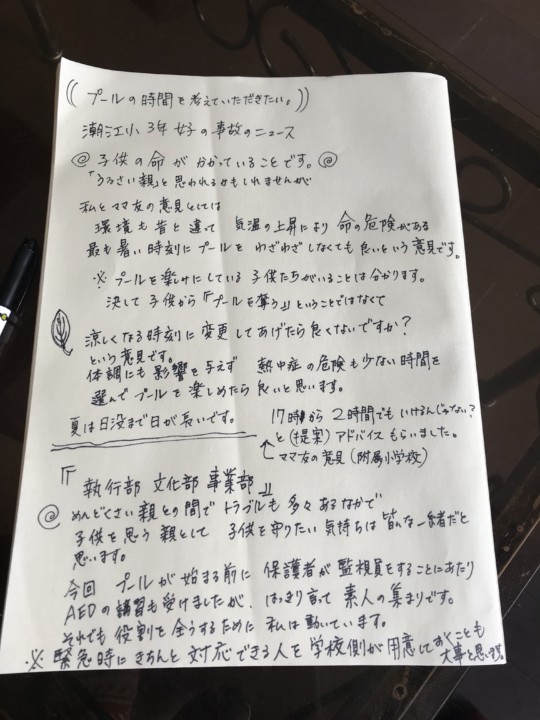 ((プールの時間を考えていただきたい。))
潮江小 3年 女子の事故のニュース
◎ 子供の命がかかっていることです。◎
「うるさい親」と思われるかもしれませんが
私とママ友の意見としては
環境も昔と違って 気温の上昇により 命の危険がある
最も暑い時刻にプールを わざわざしなくても良いという意見です。
※ プールを楽しみにしている 子供たちがいることは分かります。
決して子供から『プールを奪う』ということではなくて
涼しくなる時刻に変更してあげたら良くないですか?
という意見です。
体調にも影響を与えず 熱中症の危険も少ない時間を
選んでプールを楽しめたら良いと思います。
夏は日没まで日が長いです。
17時から2時間でもいけるんじゃない?
と(提案)アドバイスもらいました。
↑ママ友の意見(附属小学校)
『執行部 文化部 事業部』
◎ めんどくさい親との間でトラブルも多々あるなかで
子供を思う親として 子供を守りたい気持ちは皆んな一緒だと
思います。
今回 プールが始まる前に 保護者が監視員をすることにあたり
AEDの講習も受けましたが、はっきり言って 素人の集まりです。
それでも役割を全うするために 私は動いています。
※ 緊急時にきちんと対応できる人を学校側が用意しておくことも
大事と思います。